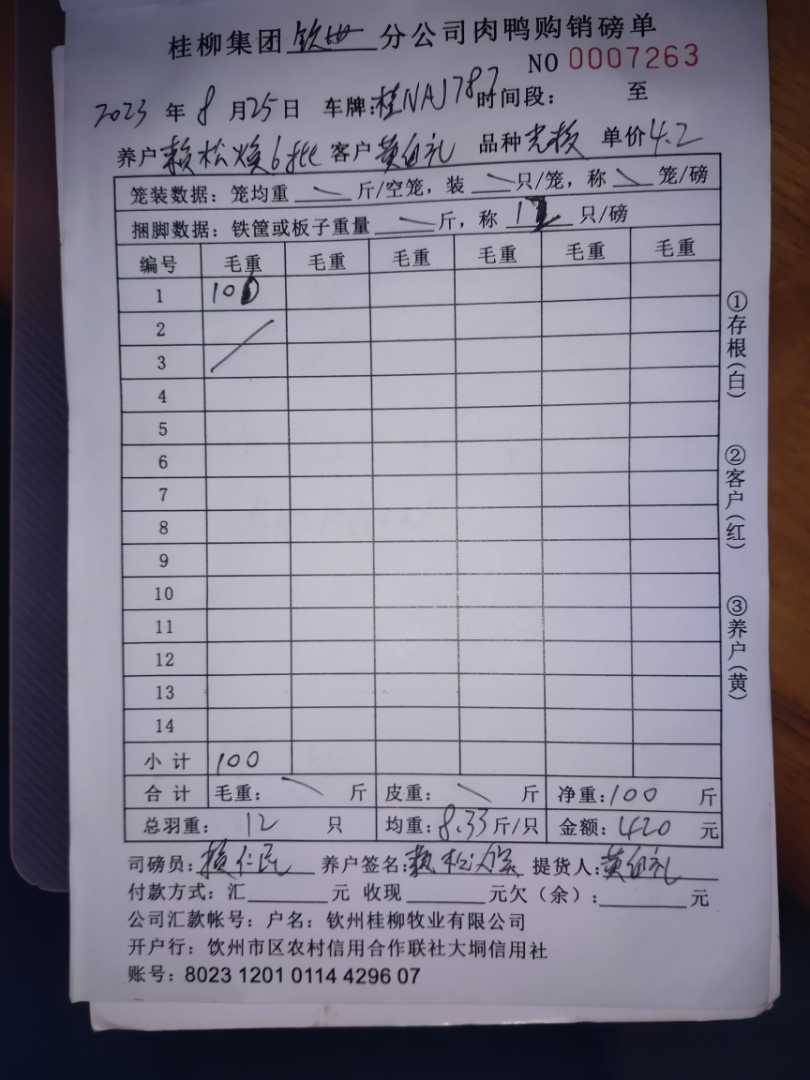 桂柳集团 钦州 分公司肉鸭购销磅单
NO 0007263
2023 年 8 月 25 日 车牌: 桂NAJ787 时间段: 至
养户 赖松焕6批 客户 黄白礼 品种 单价 4.2
笼装数据: 笼均重 斤/空笼, 装 只/笼, 称 笼/磅
捆脚数据: 铁筐或板子重量 斤, 称 12 只/磅
编号 毛重 毛重 毛重 毛重 毛重 毛重
1 100
2
3
4
5
6
7
8
9
10
11
12
13
14
小计 100
合计 毛重: 斤 皮重: 斤 净重: 100 斤
总羽重: 12 只 均重: 8.33 斤/只 金额: 420 元
司磅员: 养户签名: 赖松 提货人: 黄白礼
付款方式: 汇 元 收现 元欠(余): 元
公司汇款帐号: 户名: 钦州桂柳牧业有限公司
开户行: 饮州市区农村信用合作联社大垌信用社
账号: 8023 1201 0114 4296 07
①存根(白)
②客户(红)
③养户(黄)